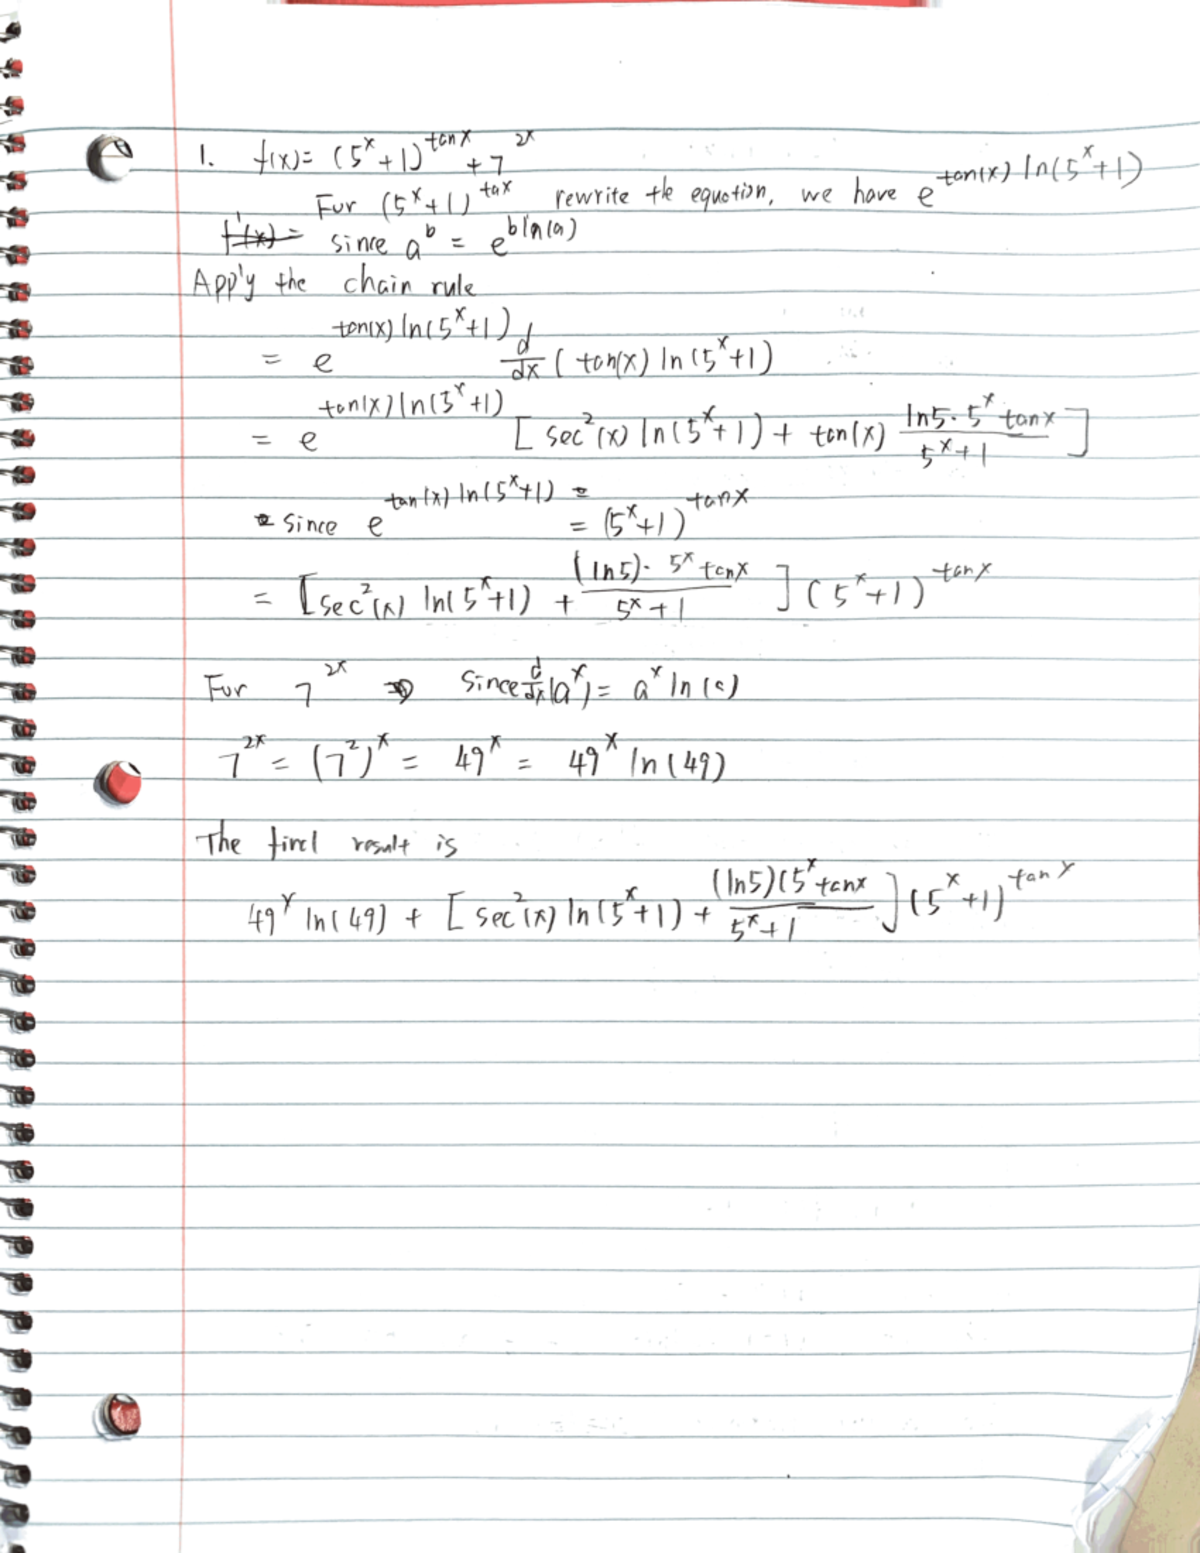 1. f(x)= (5^x+1)^tanx +7^2x
For (5^x+1)^tax rewrite the equation, we have e^tan(x) ln(5^x+1)
f'(x)= since a^b = e^bln(a)
Apply the chain rule
= e^tan(x) ln(5^x+1) d/dx ( tan(x) ln (5^x+1)
= e^tan(x) ln(5^x+1) [ sec^2(x) ln(5^x+1) + tan(x) ln5·5^x tanx / 5^x+1 ]
since e^tan(x) ln(5^x+1) = = (5^x+1)^tanx
= [sec^2(x) ln(5^x+1) + (ln5)· 5^x tanx / 5^x+1 ] (5^x+1)^tanx
For 7^2x ⇒ Since d/dx(a^x)= a^x ln(a)
7^2x = (7^2)^x = 49^x = 49^x ln(49)
The final result is
49^x ln(49) + [ sec^2(x) ln(5^x+1) + (ln5)(5^x tanx / 5^x+1 ] (5^x+1)^tanx